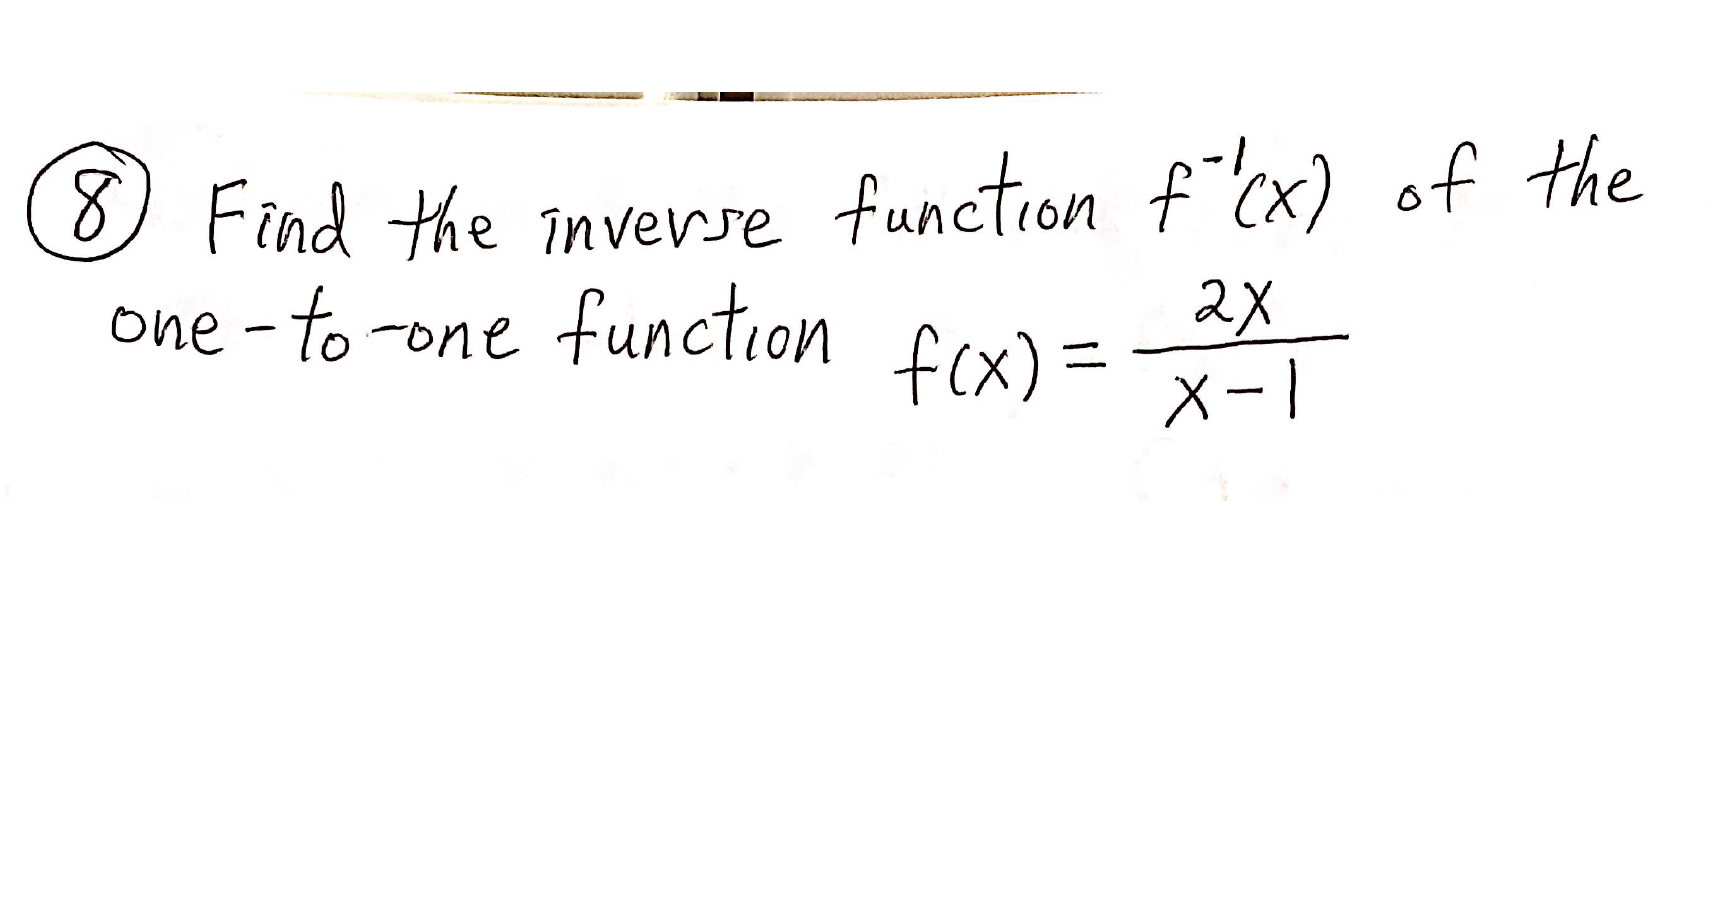 ⑧ Find the inverse function f⁻¹(x) of the
one-to-one function f(x) = 2x / x-1